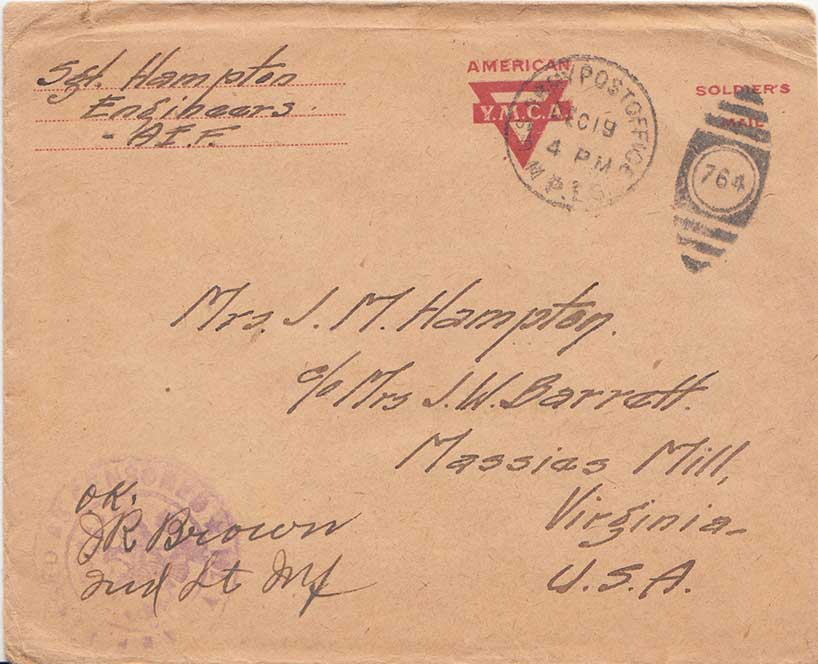 Sgt. Hampton
Engineers.
- A.E.F.
AMERICAN
Y.M.C.A.
POST OFFICE
DEC 19
4 PM
SOLDIER'S
MAIL
764
Mrs. J. M. Hampton.
c/o Mrs J. W. Barrett.
Massies Mill,
Virginia-
U.S.A.
CENSORED
OK.
JR Brown
2nd Lt Inf